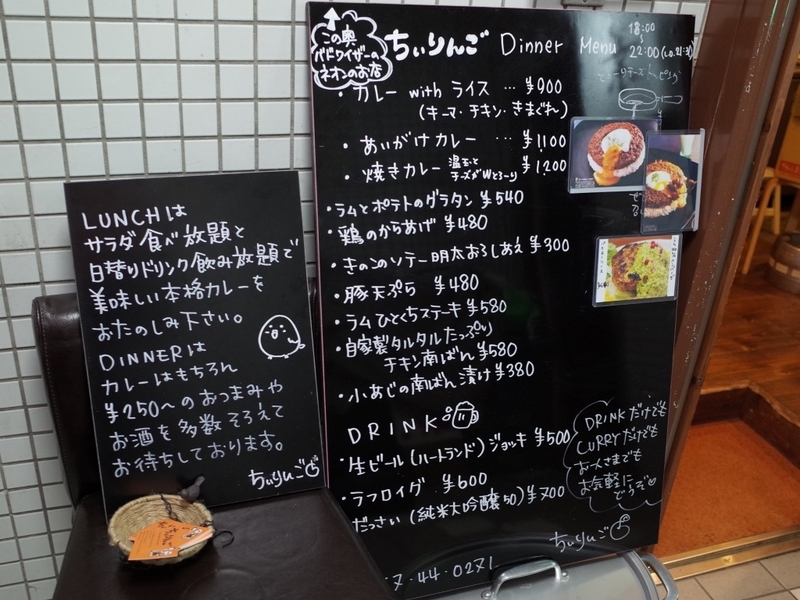 LUNCHは
サラダ食べ放題と
日替りドリンク飲み放題で
美味しい本格カレーを
おたのしみ下さい。
DINNERは
カレーはもちろん
¥250〜のおつまみや
お酒を多数そろえて
お待ちしております。
ちぃりんご
この奥
バドワイザーの
ネオンのお店
ちぃりんご Dinner Menu
18:00
22:00(L.O.21:30)
・カレー with ライス … ¥900
(キーマ・チキン・きまぐれ)
・あいがけカレー … ¥1100
・焼きカレー 温玉と チーズがWとろ〜り ¥1200
・ラムとポテトのグラタン ¥540
・鶏のからあげ ¥480
・きのこのソテー明太おろしあえ ¥300
・豚天ぷら ¥480
・ラムひとくちステーキ ¥580
・自家製タルタルたっぷり
チキン南ばん ¥580
・小あじの南ばん漬け ¥380
DRINK
・生ビール(ハートランド)ジョッキ ¥500
・ラフロイグ ¥600
・だっさい(純米大吟醸50) ¥700
DRINKだけでも
CURRYだけでも
お一人さまでも
お気軽に
どうぞ
ちぃりんご
7.44.0271